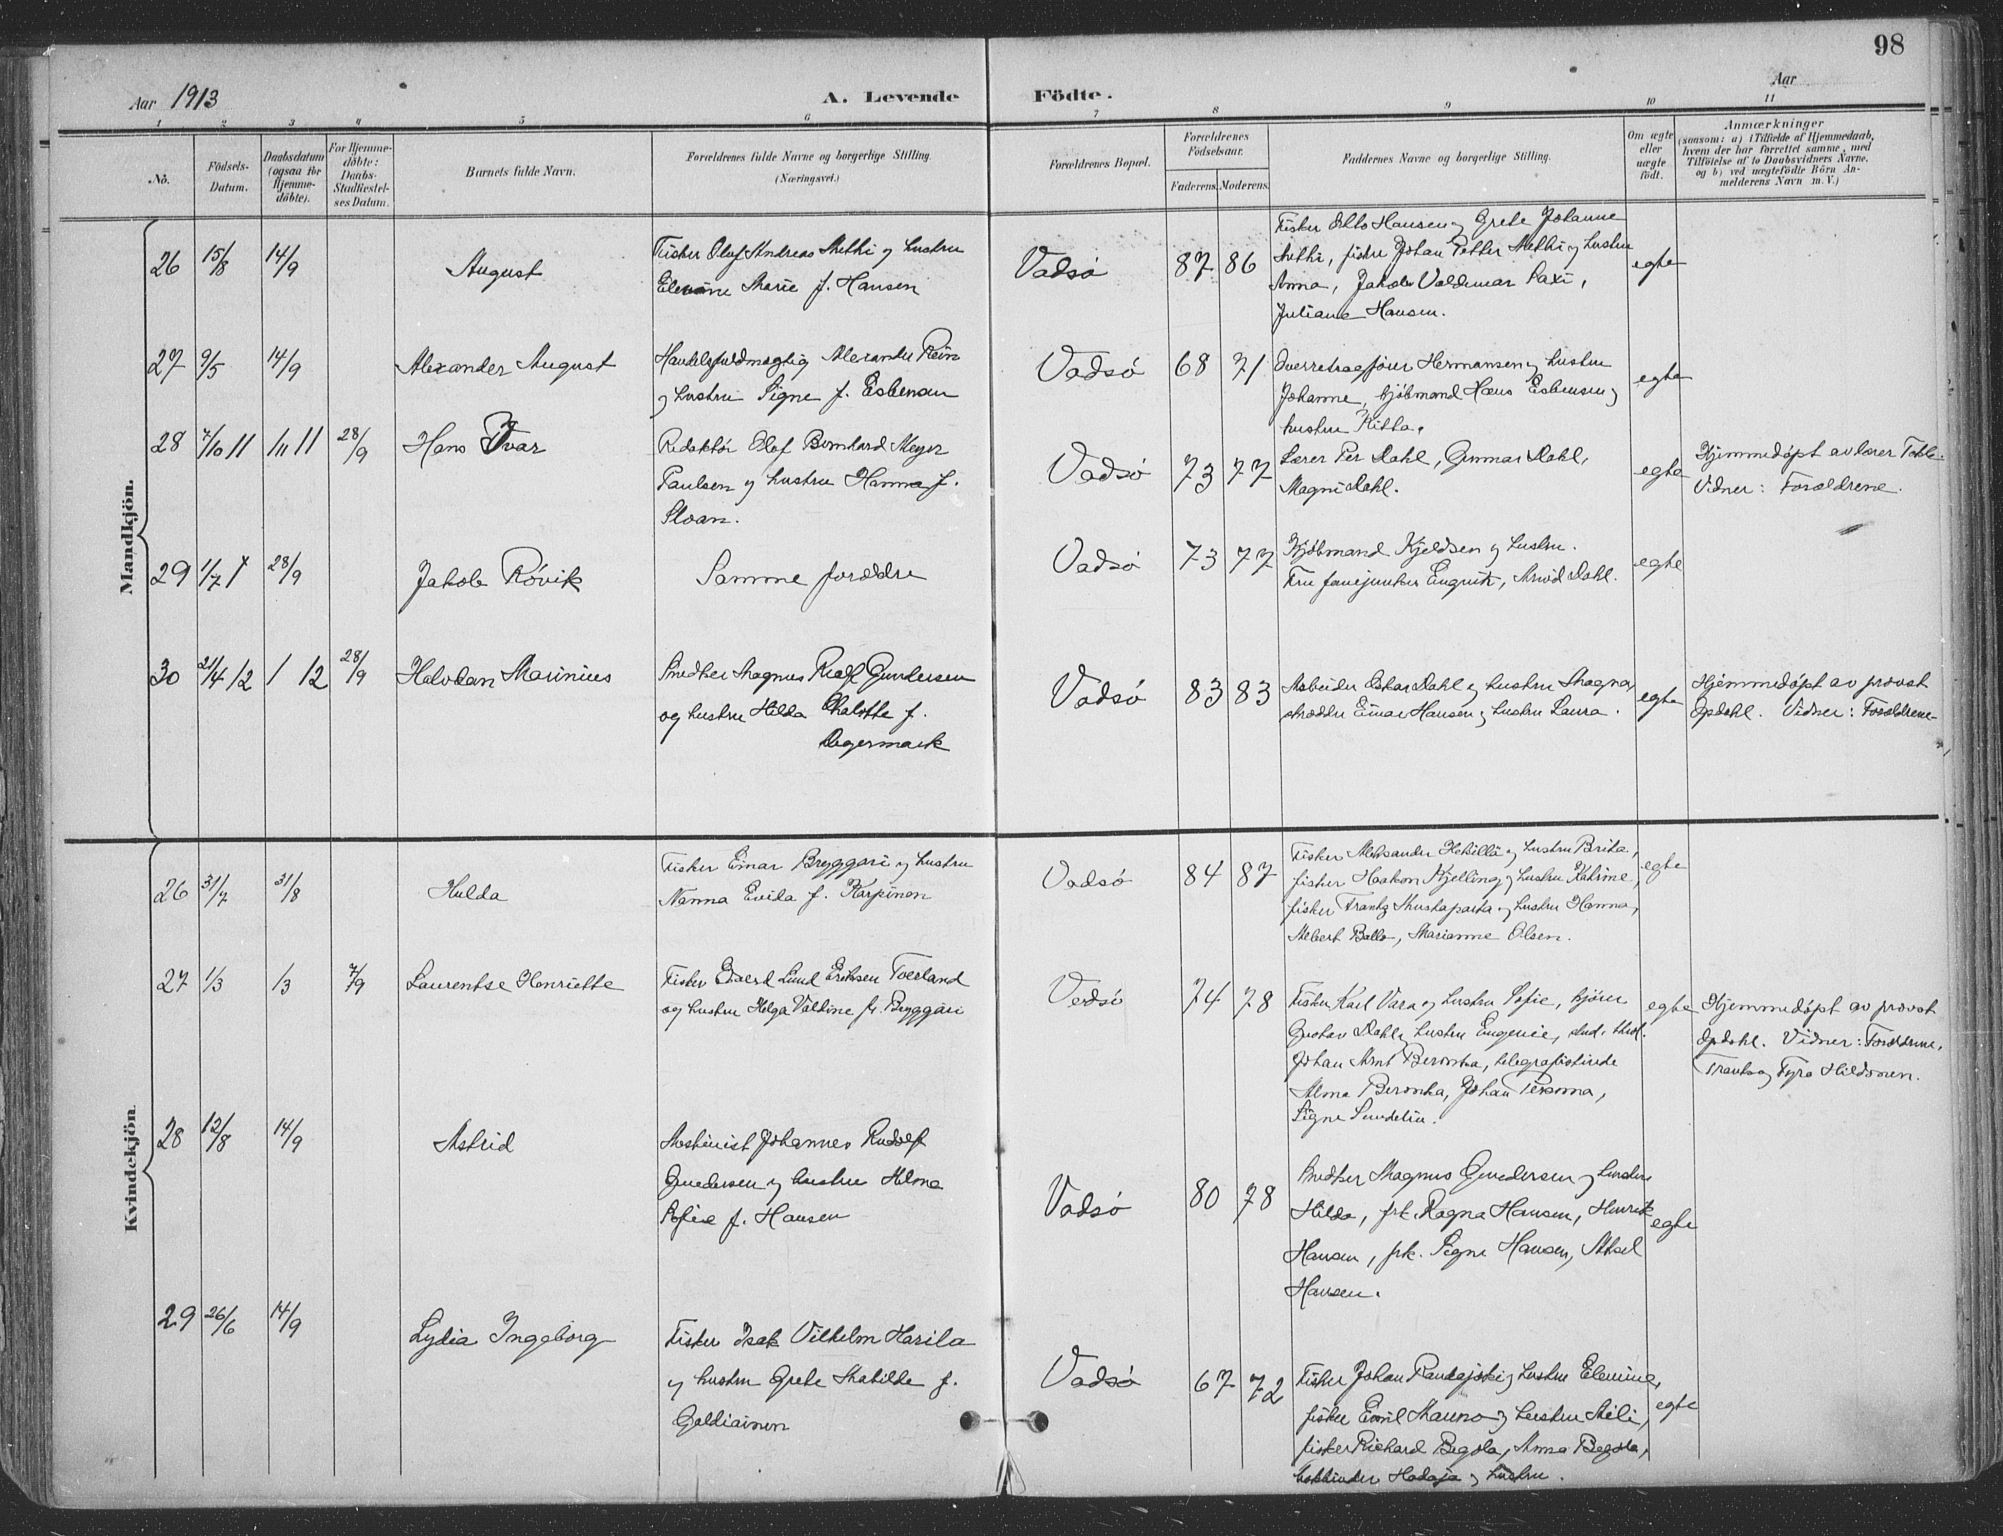 98
Aar 1913
A. Levende Födte.
Aar
1 2 3 4 5 6 7 8 9 10 11
No.
Födsels-
Datum.
Daabsdatum
(ogsaa for
Hjemme-
döbte).
For Hjemme-
döbte:
Daabs-
Stadfæstel-
ses Datum.
Barnets fulde Navn.
Forældrenes fulde Navne og borgerlige Stilling.
(Næringsvei.)
Forældrenes Bopæl.
Forældrenes
Födselsaar.
Faderens. Moderens.
Faddernes Navne og borgerlige Stilling.
Om ægte
eller
uægte
födt.
Anmærkninger
(saasom: a) i Tilfælde af Hjemmedaab,
hvem der har forrettet samme, med
Tilföielse af to Daabsvidners Navne,
og b) ved uægtefödte Börn An-
melderens Navn m. V.)
Mandkjön.
26 15/8 14/9 August
Fisker Oluf Andreas Methi og hustru
Marie f. Hansen
Vadsö 87 86
Fisker Hansen og Grete Johanne
Methi, fisker Johan Petter Methi og hustru
Anna, Jakob Valdemar Paxi,
Juliane Hansen.
egte
27 9/5 14/9 Alexander August
Handelsfuldmægtig Alexander
og hustru Signe f. Esbensen
Vadsö 68 71
Overretsagfører Hermansen og hustru
Johanne, kjøbmand Hans Esbensen og
hustru
egte
28 7/10 11 /11 11 28/9 Hans Ivar
Redaktør Olaf Bernhard Meyer
Paulsen og hustru Hanna f.
Sloan.
Vadsö 73 77
Lærer Per Dahl, Gunnar Dahl,
Magni Dahl.
egte
Hjemmedøpt av lærer
Vidner: Forældrene.
29 1/7 28/9 Jakob Rövik
Samme forældre
Vadsö 73 77
Kjøbmand Kjeldsen og hustru.
Fru fanejunker Enquist, Arvid Dahl.
egte
30 21/4 12 1 12 28/9 Halvdan Marinius
Snedker Magnus Gundersen
og hustru Hilda Chalotte f.
Degermark
Vadsö 83 83
Arbeider Oskar Dahl og hustru Magna,
skrædder Einar Hansen og hustru Laura.
egte
Hjemmedøpt av provst
Opdahl. Vidner: Forældrene
Kvindekjön.
26 31/7 31/8 Hulda
Fisker Einar Bryggari og hustru
Nanna Evida f. Karpinen
Vadsö 84 87
Fisker Aleksander Heikillä og hustru Brita,
fisker Haakon Kjelling og hustru Katrine,
fisker Frantz Mustaparta og hustru Hanna,
Albert Ballo, Marianne Olsen.
egte
27 1/3 1/3 7/9 Laurentse Henriette
Fisker Edvard Lund Eriksen Tverland
og hustru Helga Valtine f. Bryggari
Vadsö 74 78
Fisker Karl Vara og hustru Sofie, kjører
Gustav Dahl og hustru Eugenie, stud. theol.
Johan Arnt Beronka, telegrafistinde
Alma Beronka, Johan
Signe Sundelin.
egte
Hjemmedøpt av provst
Opdahl. Vidner: Forældrene,
Frants og Tyra Hildonen.
28 12/8 14/9 Astrid
Maskinist Johannes Rudolf
Gundersen og hustru Helma
Sofie f. Hansen
Vadsö 80 78
Snedker Magnus Gundersen og hustru
Hilda, frk. Ragna Hansen, Henrik
Hansen, frk. Signe Hansen, Aksel
Hansen.
egte
29 26/6 14/9 Lydia Ingeborg
Fisker Isak Vilhelm Harila
og hustru Grete Matilde f.
Galdiainen
Vadsö 67 72
Fisker Johan Randajski og hustru Elemine,
fisker Emil Mauno og hustru Meli,
fisker Richard Begola, Anna Begola,
bokbinder Hadaja og hustru.
egte